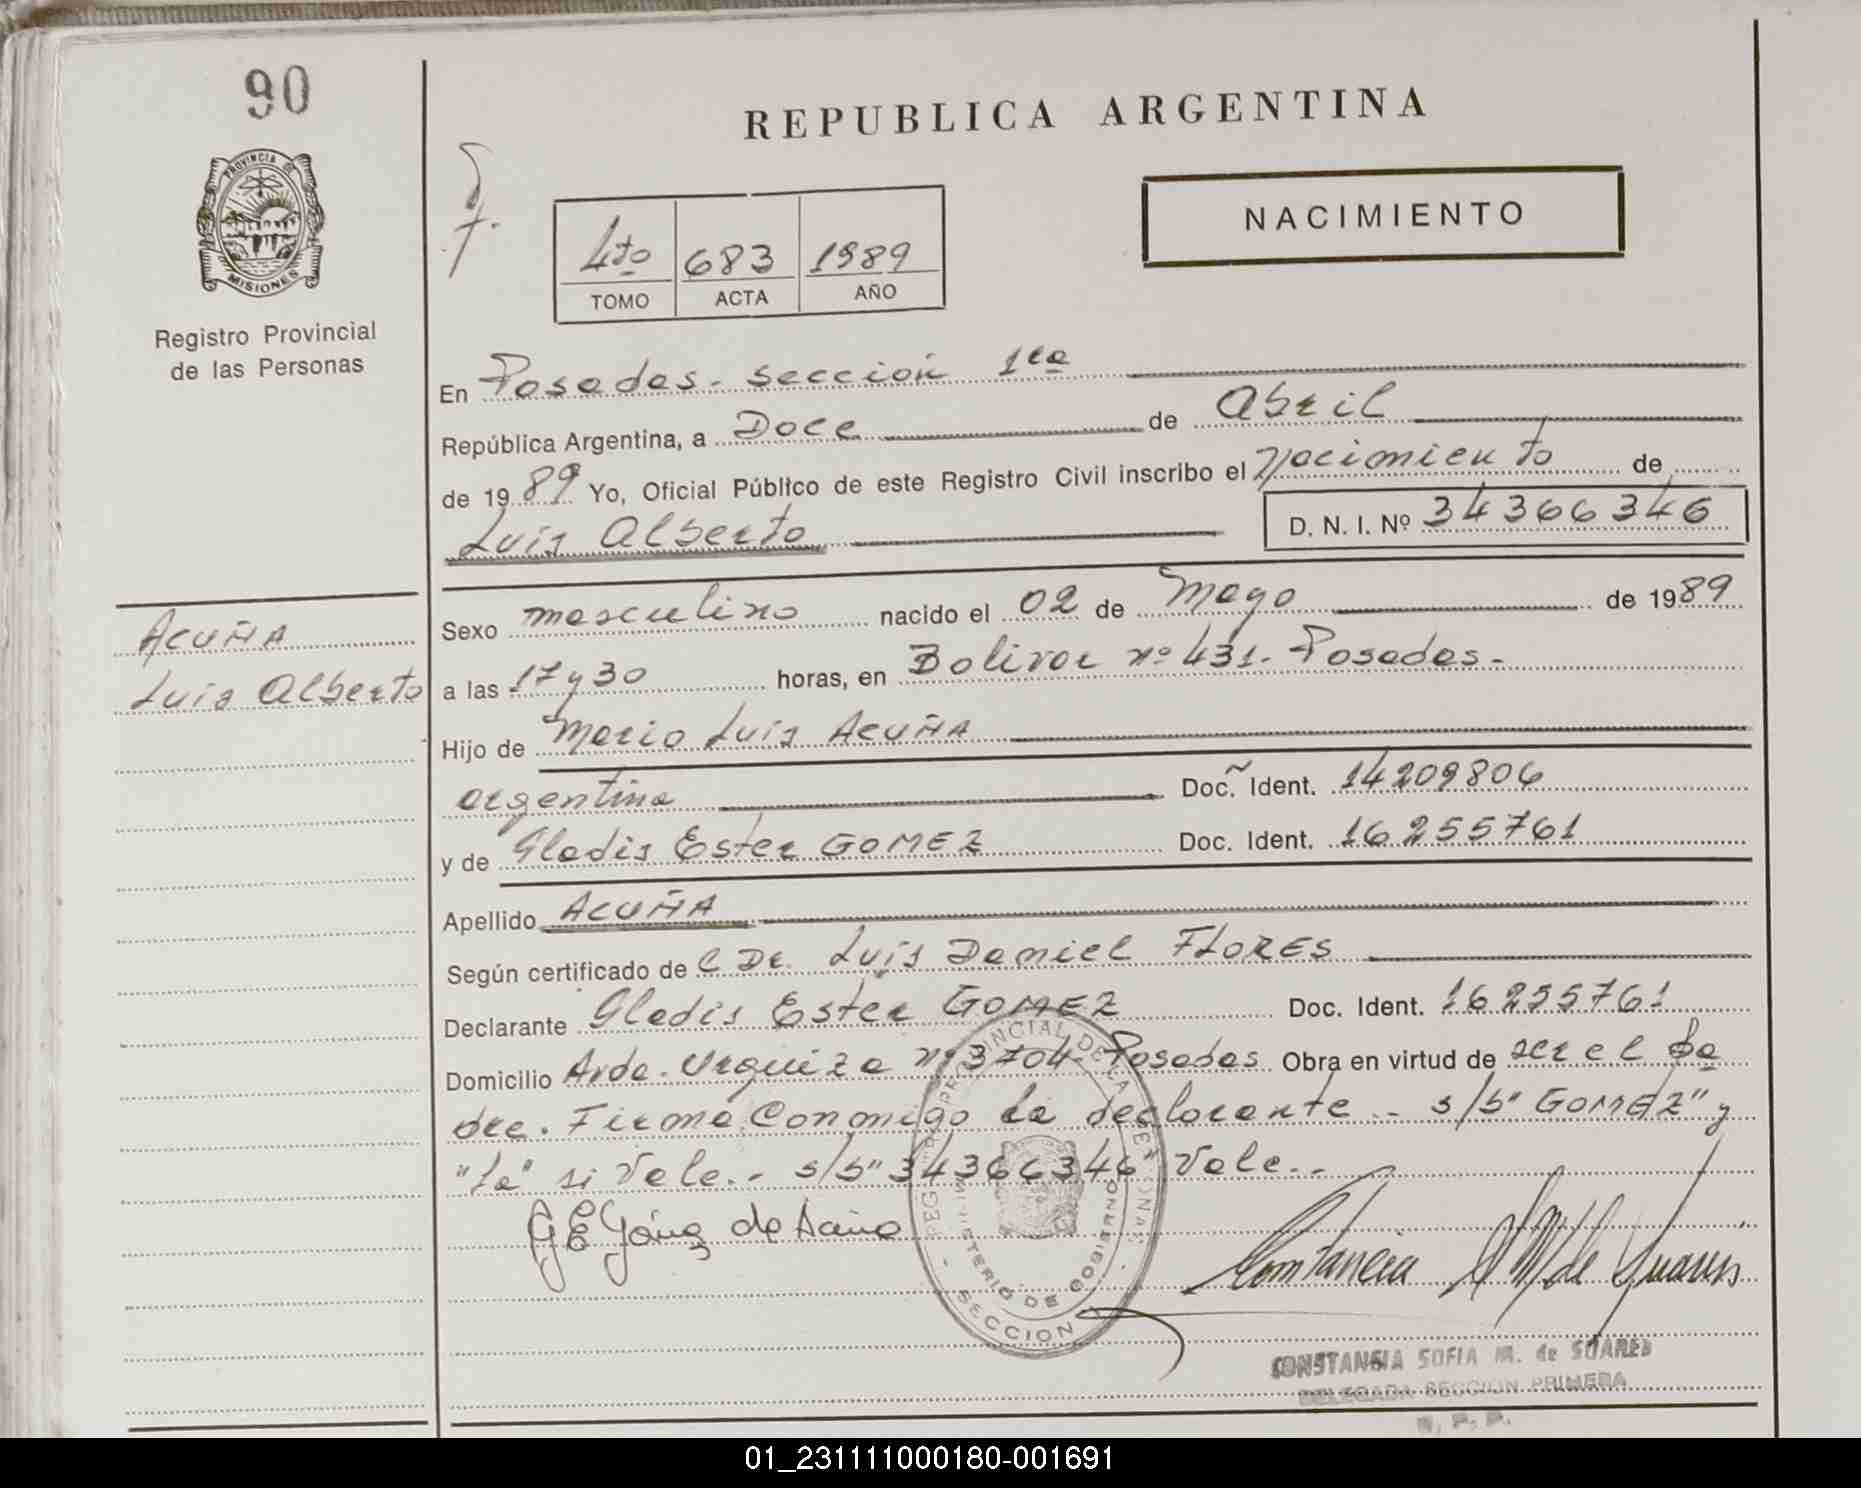 90
PROVINCIA DE
MISIONES
Registro Provincial
de las Personas
REPUBLICA ARGENTINA
NACIMIENTO
4to 683 1989
TOMO ACTA AÑO
En Posadas - sección 1ra
República Argentina, a Doce de Abril
de 1989 Yo, Oficial Público de este Registro Civil inscribo el Nacimiento de
Luis Alberto D. N. I. Nº 34366346
Acuña
Luis Alberto
Sexo masculino nacido el 02 de Mayo de 1989
a las 17 y 30 horas, en Bolivar nº 431 - Posadas -
Hijo de Mario Luis ACUÑA
argentina Doc. Ident. 14209806
y de Gladis Ester GOMEZ Doc. Ident. 16255761
Apellido ACUÑA
Según certificado de Dr. Luis Daniel FLORES
Declarante Gladis Ester GOMEZ Doc. Ident. 16255761
Domicilio Avda. Urquiza nº 3704 - Posadas Obra en virtud de ser el
dre. Firma Conmigo la declarante - s/b "GOMEZ" y
"la" si Vale.- s/b "34366346" Vale.-
Constancia S M de Suares
REG. PROVINCIAL DE LAS PERSONAS
MINISTERIO DE GOBIERNO
SECCION 1
CONSTANSIA SOFIA M. de SUARES
DELEGADA SECCION PRIMERA
R. P. P.
01_231111000180-001691